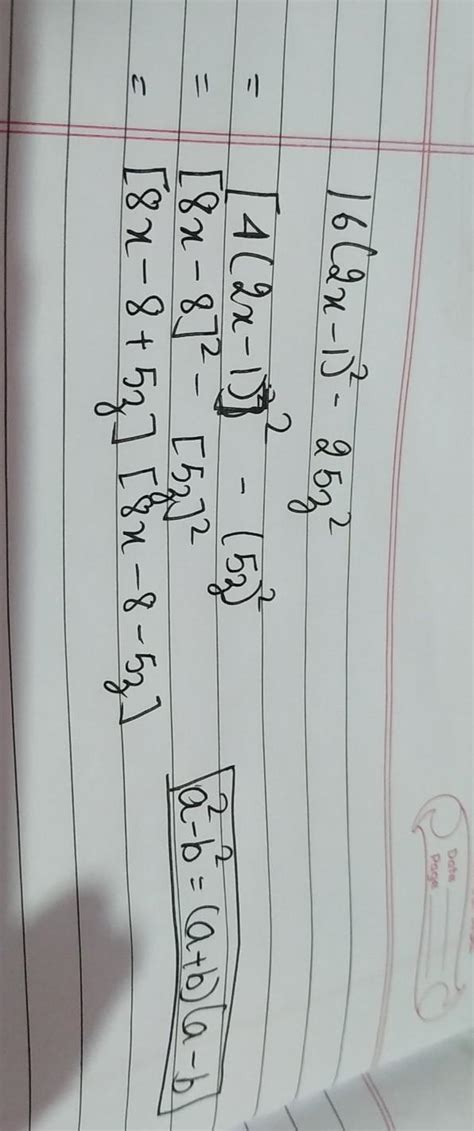 Date
Page
16(2x-1)² - 25z²
= [4(2x-1)]² - (5z)²
= [8x-8]² - [5z]²
= [8x-8+5z] [8x-8-5z]
a²-b² = (a+b)(a-b)